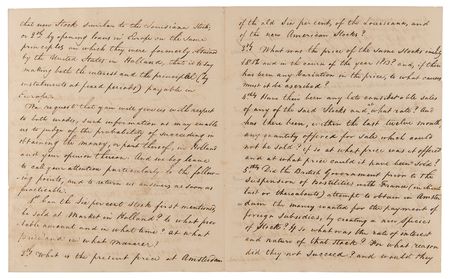 that new Stock similar to the Louisiana Stock,
or 2dly by opening loans in Europe on the same
principles in which they were formerly obtained
by the United States in Holland, that is to say
making both the interest and the principal (by
instalments at fixed periods) payable in
Europe.
We request that you will furnish us with respect
to both modes, such information as may enable
us to judge of the probability of succeeding in
obtaining the money, or part thereof, in Holland
and your opinion thereon. And we beg leave
to call your attention particularly to the follow-
ing points, and to return us answers as soon as
practicable.
1st Can the Six per cent Stock first mentioned,
be sold at Market in Holland? to what prob-
able amount and in what time? At what
price and in what manner?
2d What is the present price at Amsterdam
of the old Six per cents, of the Louisiana, and
of the new American Stocks?
3d What was the price of the same Stocks early in
1812 and in the course of the year 1813? and, if there
has been any variation in the prices, to what causes
must it be ascribed?
4th Have there been any late considerable sales
of any of the said Stocks and at what rate? Or
has there been, within the last twelve months,
any quantity offered for sale which could
not be sold? if so at what price was it offered
and at what price could it have been sold?
5th Did the British Government prior to the
suspension of hostilities with France (in
last or thereabouts) attempt to obtain in Amster-
dam the money wanted for the payment of
foreign Subsidies, by creating a new species
of Stock? If so, what was the rate of interest
and nature of that Stock? For what reason
did they not succeed? and would they